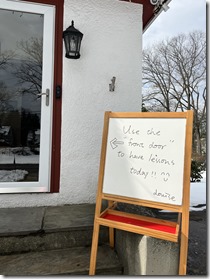 Use the
← front door
to have lessons
today!! ^^
Louise